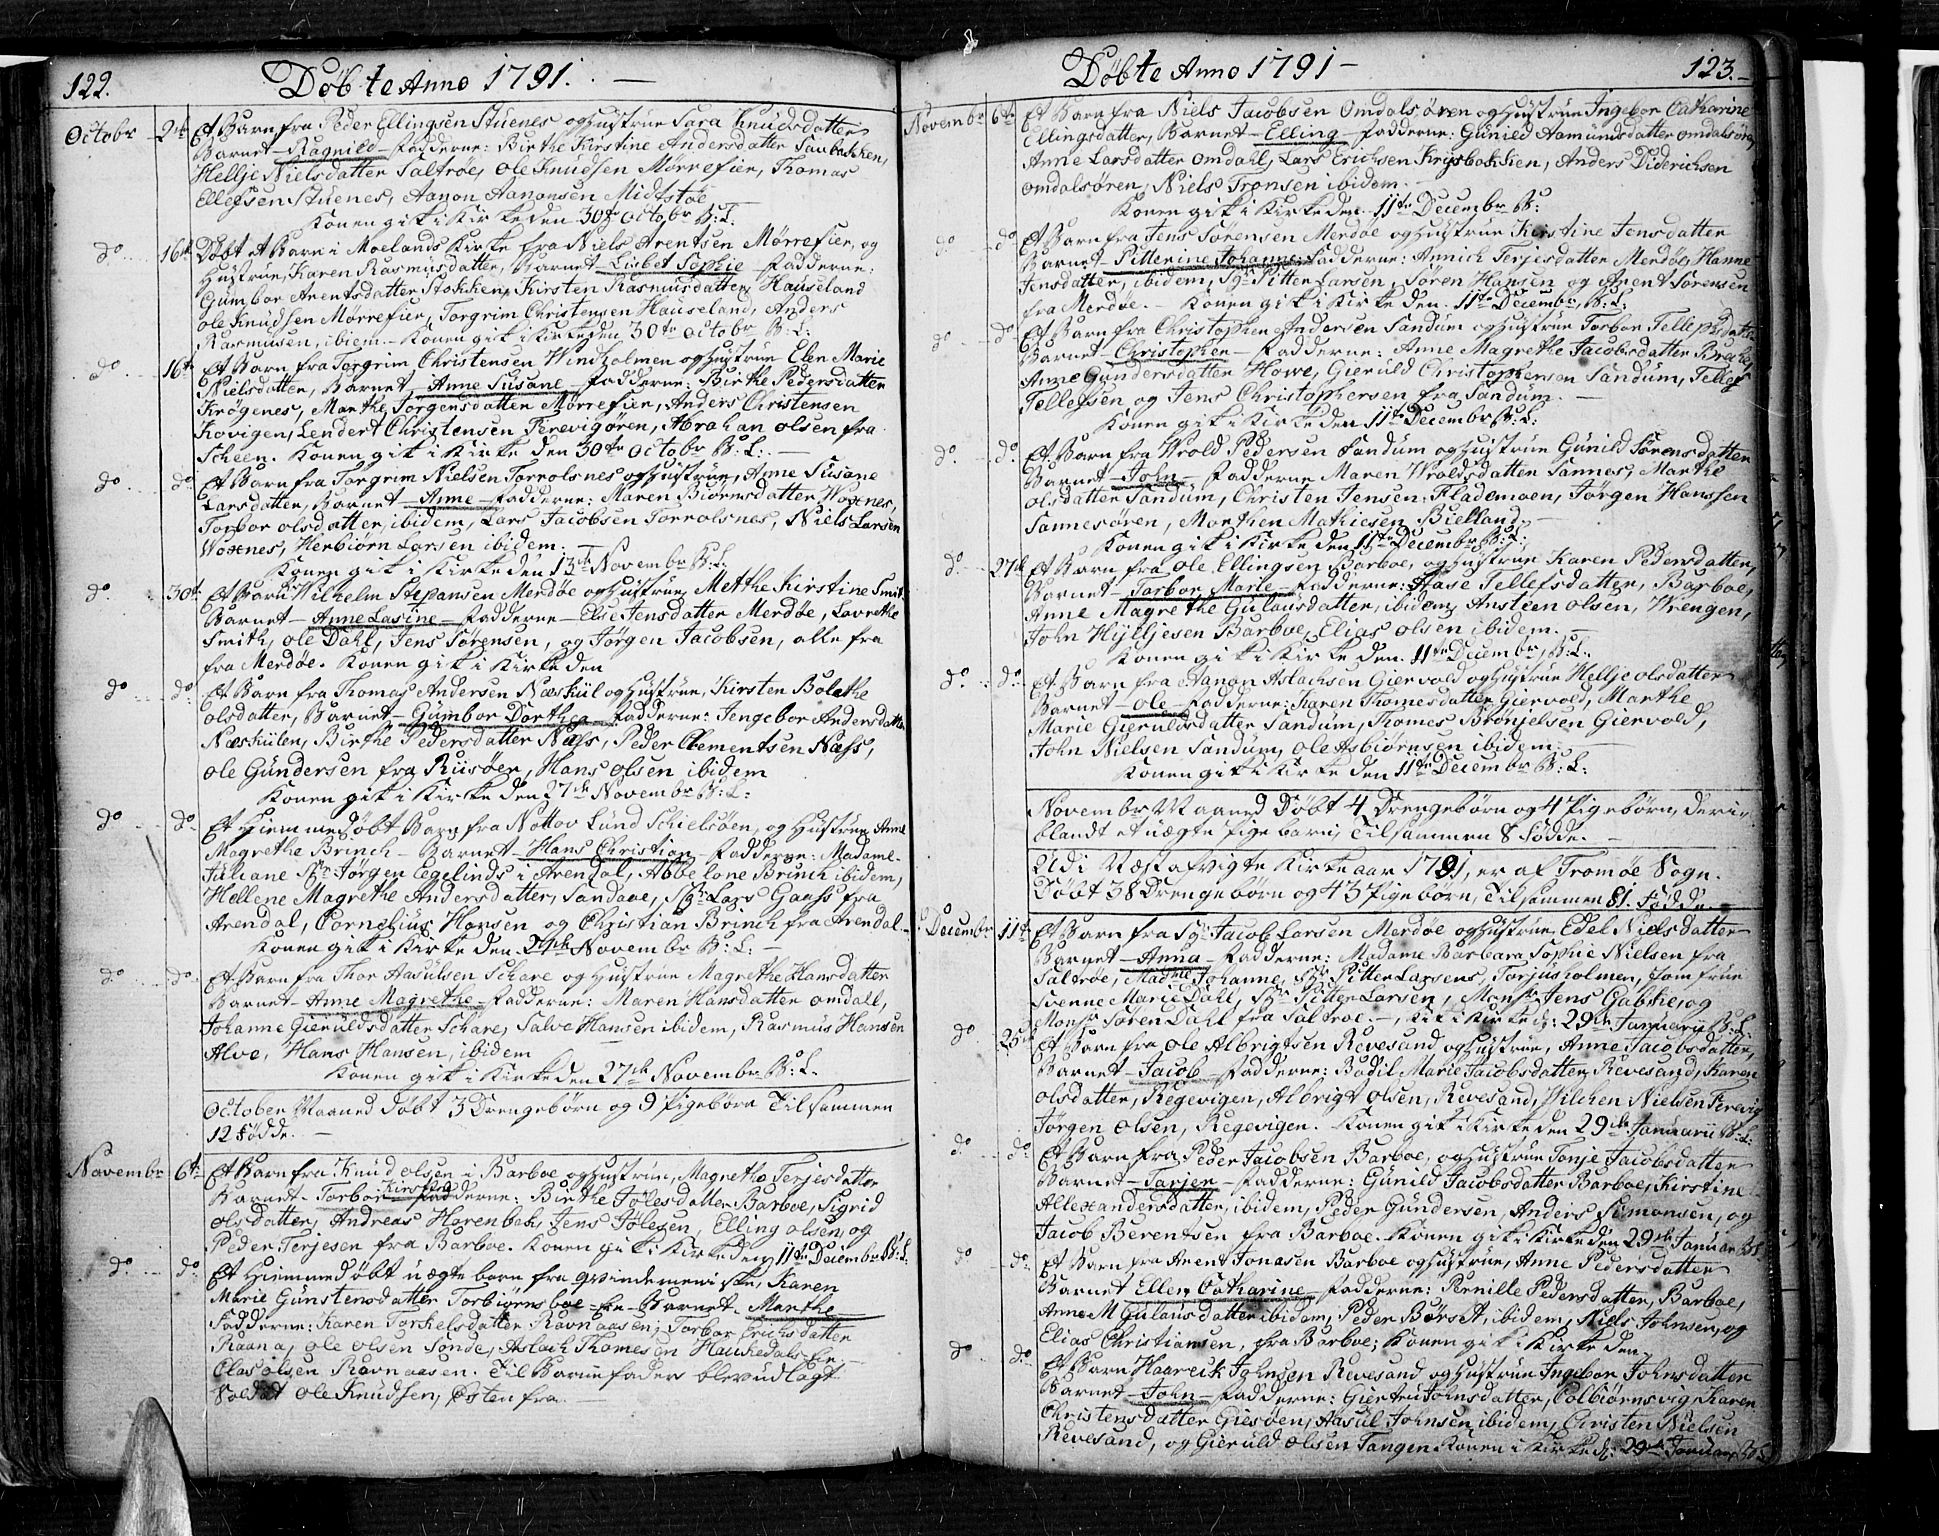 122. Döbte Anno 1791. —
Octobr 2de Et Barn fra Peder Ellingsen Stuenes og Hustrue Sara Knudsdatter
Barnet — Ragnild — Fadderne: Birthe Kirstine Andersdatter Saubakken,
Hellje Nielsdatter Saltröe, Ole Knudsen Mörrefier, Thomas
Ellefsen Stuenes, Aanon Aanonsen Midtstöe
Konen gik i Kirke den 30te Octobr B: L:
do 16de Döbt et Barn i Moelands Kirke fra Niels Arentsen Mörrefier, og
Hustrue, Karen Rasmusdatter, Barnet — Lisbet Sophie — Fadderne:
Gumbor Arentsdatter Stokken, Kirsten Rasmusdatter Hauseland
Ole Knudsen Mörrefier, Torgrim Christensen Hauseland, Anders
Rasmusen, ibiem — Konen gik i Kirke den 30te Octobr B: L:
do 16de Et Barn fra Torgrim Christensen Windholmen og Hustrue Elen Marie
Nielsdatter, Barnet — Anne Susane — Fadderne: Birthe Pedersdatter
Krögenes, Marthe Jörgensdatter Mörrefier, Anders Christensen
Kovigen, Lendert Christensen Ferevigören, Abrahan Olsen fra
Scheen. Konen gik i Kirke den 30te Octobr B: L: —
do do Et Barn fra Torgrim Nielsen Torrolsnes og Hustrue, Anne Susane
Larsdatter, Barnet — Anne — Fadderne: Maren Biörnsdatter Woxnes,
Torbor Olsdatter, ibidem, Lars Jacobsen Torrolsnes, Niels Larsen
Woxnes, Herbiörn Larsen ibidem. —
Konen gik i Kirke den 13de Novembr B: L:
do 30te Et Barn Wilhelm Stepansen Merdöe og Hustrue, Metthe Kirstine Smit
Barnet — Anne Lasine — Fadderne — Else Jensdatter Merdöe, Lavrethe
Smith, Ole Dahl, Jens Sörensen, og Jörgen Jacobsen, alle fra
fra Merdöe. Konen gik i Kirke den
do do Et Barn fra Thomas Andersen Næskiil og Hustrue, Kirsten Bolethe
Olsdatter, Barnet — Gumbor Dorthea — Fadderne: Jengebor Andersdatter
Næskiilen, Birthe Pedersdatter Næss, Peder Clementsen Næss,
Ole Gundersen fra Riisöer, Hans Olsen ibidem
Konen gik i Kirke den 27de Novembr B: L:
do do Et Hiemmedöbt Barn fra Nottov Lund Schielsöen, og Hustrue Anne
Magrethe Brinch — Barnet — Hans Christian — Fadderne: Madame
Juliane Sr Jörgen Eegelinds i Arendal, Abbelone Brinch ibidem,
Hellene Magrethe Andersdatter, Sandaae, Sr Lars Gaass fra
Arendal, Cornelius Hansen og Christian Brinch fra Arendal —
Konen gik i Kirke den 27de Novembr B: L: —
do do Et Barn fra Thor Aasulsen Schare og Hustrue Magrethe Hansdatter
Barnet — Anne Magrethe — Fadderne: Maren Hansdatter Omdall,
Johanne Gieruldsdatter Schare, Salve Hansen ibidem, Rasmus Hansen
Alve, Hans Hansen, ibidem
Konen gik i Kirke den 27de Novembr B: L:
October Maaned Döbt 3 Drengebörn og 9 Pigebörn Tilsammen
12 Födde. —
Novembr 6te Et Barn fra Knud Olsen i Barboe og Hustrue, Magrethe Terjesdatter
Barnet — Torbor Kirstine Fadderne: Birthe Jölesdatter Barboe, Sigrid
Olsdatter, Andreas Harenbak, Jens Jölesen, Elling Olsen, og
Peder Terjesen fra Barboe. Konen gik i Kirke den 11te Decembr B: L:
do do Et Hiemmedöbt uægte barn fra Qvindemeniske, Karen
Marie Gunstensdatter Torbiörnsboe — Barnet — Marthe —
Fadderne: Karen Torkelsdatter Ravnaasen, Torbor Erichsdatter
Raana, Ole Olsen Sönde, Aslach Thomesen Haukedals
Claes Olsen Ravnaasen. Til Barnefader blev udlagt
Soldat Ole Knudsen, Östen fra. —
Döbte Anno 1791 — 123.
Novembr 6te Et Barn fra Niels Jacobsen Omdalsören og Hustrue Ingebor Catharine
Ellingsdatter, Barnet — Elling — Fadderne: Gunild Aamundsdatter Omdalsören,
Anne Larsdatter Omdahl, Lars Erichsen Krysbakken, Anders Diderichsen
Omdalsören, Niels Tronsen ibidem. —
Konen gik i Kirke den 11te Decembr B:
do do Et Barn fra Jens Sörensen Merdöe og Hustrue Kirstine Jensdatter
Barnet — Pitterine Johanne: Fadderne: Annich Terjesdatter Merdöe, Hanne
Jensdatter, ibidem, Sr Pitter Larsen, Sören Hansen og Arent Sörensen
fra Merdöe. — Konen gik i Kirke den. 11te Decembr, B: L:
do do Et Barn fra Christopher Andersen Sandum og Hustrue Torbor Tellephsdatter
Barnet — Christopher — Fadderne: Anne Magrethe Jacobsdatter Brække,
Anne Gundersdatter Howe, Gieruld Christophersen Sandum, Tellef
Tellefsen og Jens Christophersen fra Sandum. —
Konen gik i Kirke den 11te Decembr B: L:
do do Et Barn fra Wrold Pedersen Sandum og Hustrue Gunild Sörensdatter
Barnet — John — Fadderne Maren Wroldsdatter Sannes, Marthe
Olsdatter Sandum, Christen Jensen Flademoen, Jörgen Hanssen
Sannesören, Morthen Mathiesen Bielland, —
Konen gik i Kirke den 11te Decembr B: L:
do 27de Et Barn fra Ole Ellingsen Barboe, og Hustrue Karen Pedersdatter,
Barnet — Torbor Marie — Fadderne: Aase Tellefsdatter, Barboe,
Anne Magrethe Gulausdatter, ibidem, Ansteen Olsen, Wrengen,
John Hylljesen Barboe, Elias Olsen ibidem. —
Konen gik i Kirke den 11te Decembr, B: L:
do do Et Barn fra Aanon Aslachsen Giervold og Hustrue Hellje Olsdatter
Barnet — Ole — Fadderne: Karen Thomesdatter Giervold, Marthe
Marie Gieruldsdatter Sandum, Thomes Brönjelsen Giervold,
John Nielsen Sandum, Ole Asbiörnsen ibidem. —
Konen gik i Kirke den 11te Decembr B: L:
Novembr Maaned Döbt 4 Drengebörn og 4 Pigebörn, deri-
blandt et uægte Pigebarn, Tilsammen 8 Födde. —
Udi Næstafvigte Kirkeaar 1791, er af Tromöe Sogn.
Döbt 38 Drengebörn og 43 Pigebörn, Tilsammen 81. Födde.
Decembr 11te Et Barn fra Sr Jacob Larsen Merdöe og Hustrue, Edel Nielsdatter
Barnet — Anna — Fadderne: Madame Barbara Sophie Nielsen fra
Saltröe, Madme Johanne, Sr Pitter Larsens, Torjusholmen, Jomfrue
Svenne Marie Dahl, Sr Pitter Larsen, Monsr Jens Gabrie, og
Monsr Sören Dahl fra Saltröe. —, gik i Kirke d: 29de Januarii B: L
do 25de Et Barn fra Ole Albrigtsen Revesand og Hustrue, Anne Jacobsdatter,
Barnet — Jacob — Fadderne: Bodil Marie Jacobsdatter Revesand, Karen
Olsdatter, Regevigen, Albrigt Olsen, Revesand, Wilchen Nielsen Ferevig
Jörgen Olsen, Regevigen. Konen gik i Kirke den 29de Januarii B: L:
do do Et Barn fra Peder Jacobsen Barboe, og Hustrue Tonje Jacobsdatter
Barnet — Tarjer — Fadderne: Gunild Jacobsdatter Barboe, Kirstine
Allexandersdatter, ibidem, Peder Gundersen, Anders Simonsen, og
Jacob Berentsen fra Barboe. Konen gik i Kirke den 29de Januar B:
do do Et Barn fra Arent Jonasen Barboe og Hustrue, Anne Pedersdatter
Barnet Ellen Catharine — Fadderne: Pernille Pedersdatter, Barboe,
Anne M Gulausdatter ibidem, Peder Börset, ibidem, Niels Johnsen, og
Elias Christiansen, fra Barboe; Konen gik i Kirke den,
do do Et Barn Haareck Johnsen Revesand og Hustrue Ingebor Johnsdatter
Barnet — John — Fadderne: Giertru Johnsdatter, Colbiörnsvig, Karen
Christensdatter Giesöen, Aasul Johnsen, ibidem, Christen Nielsen
Revesand, og Gieruld Olsen Tangen Konen i Kirke d: 29de Januar B: